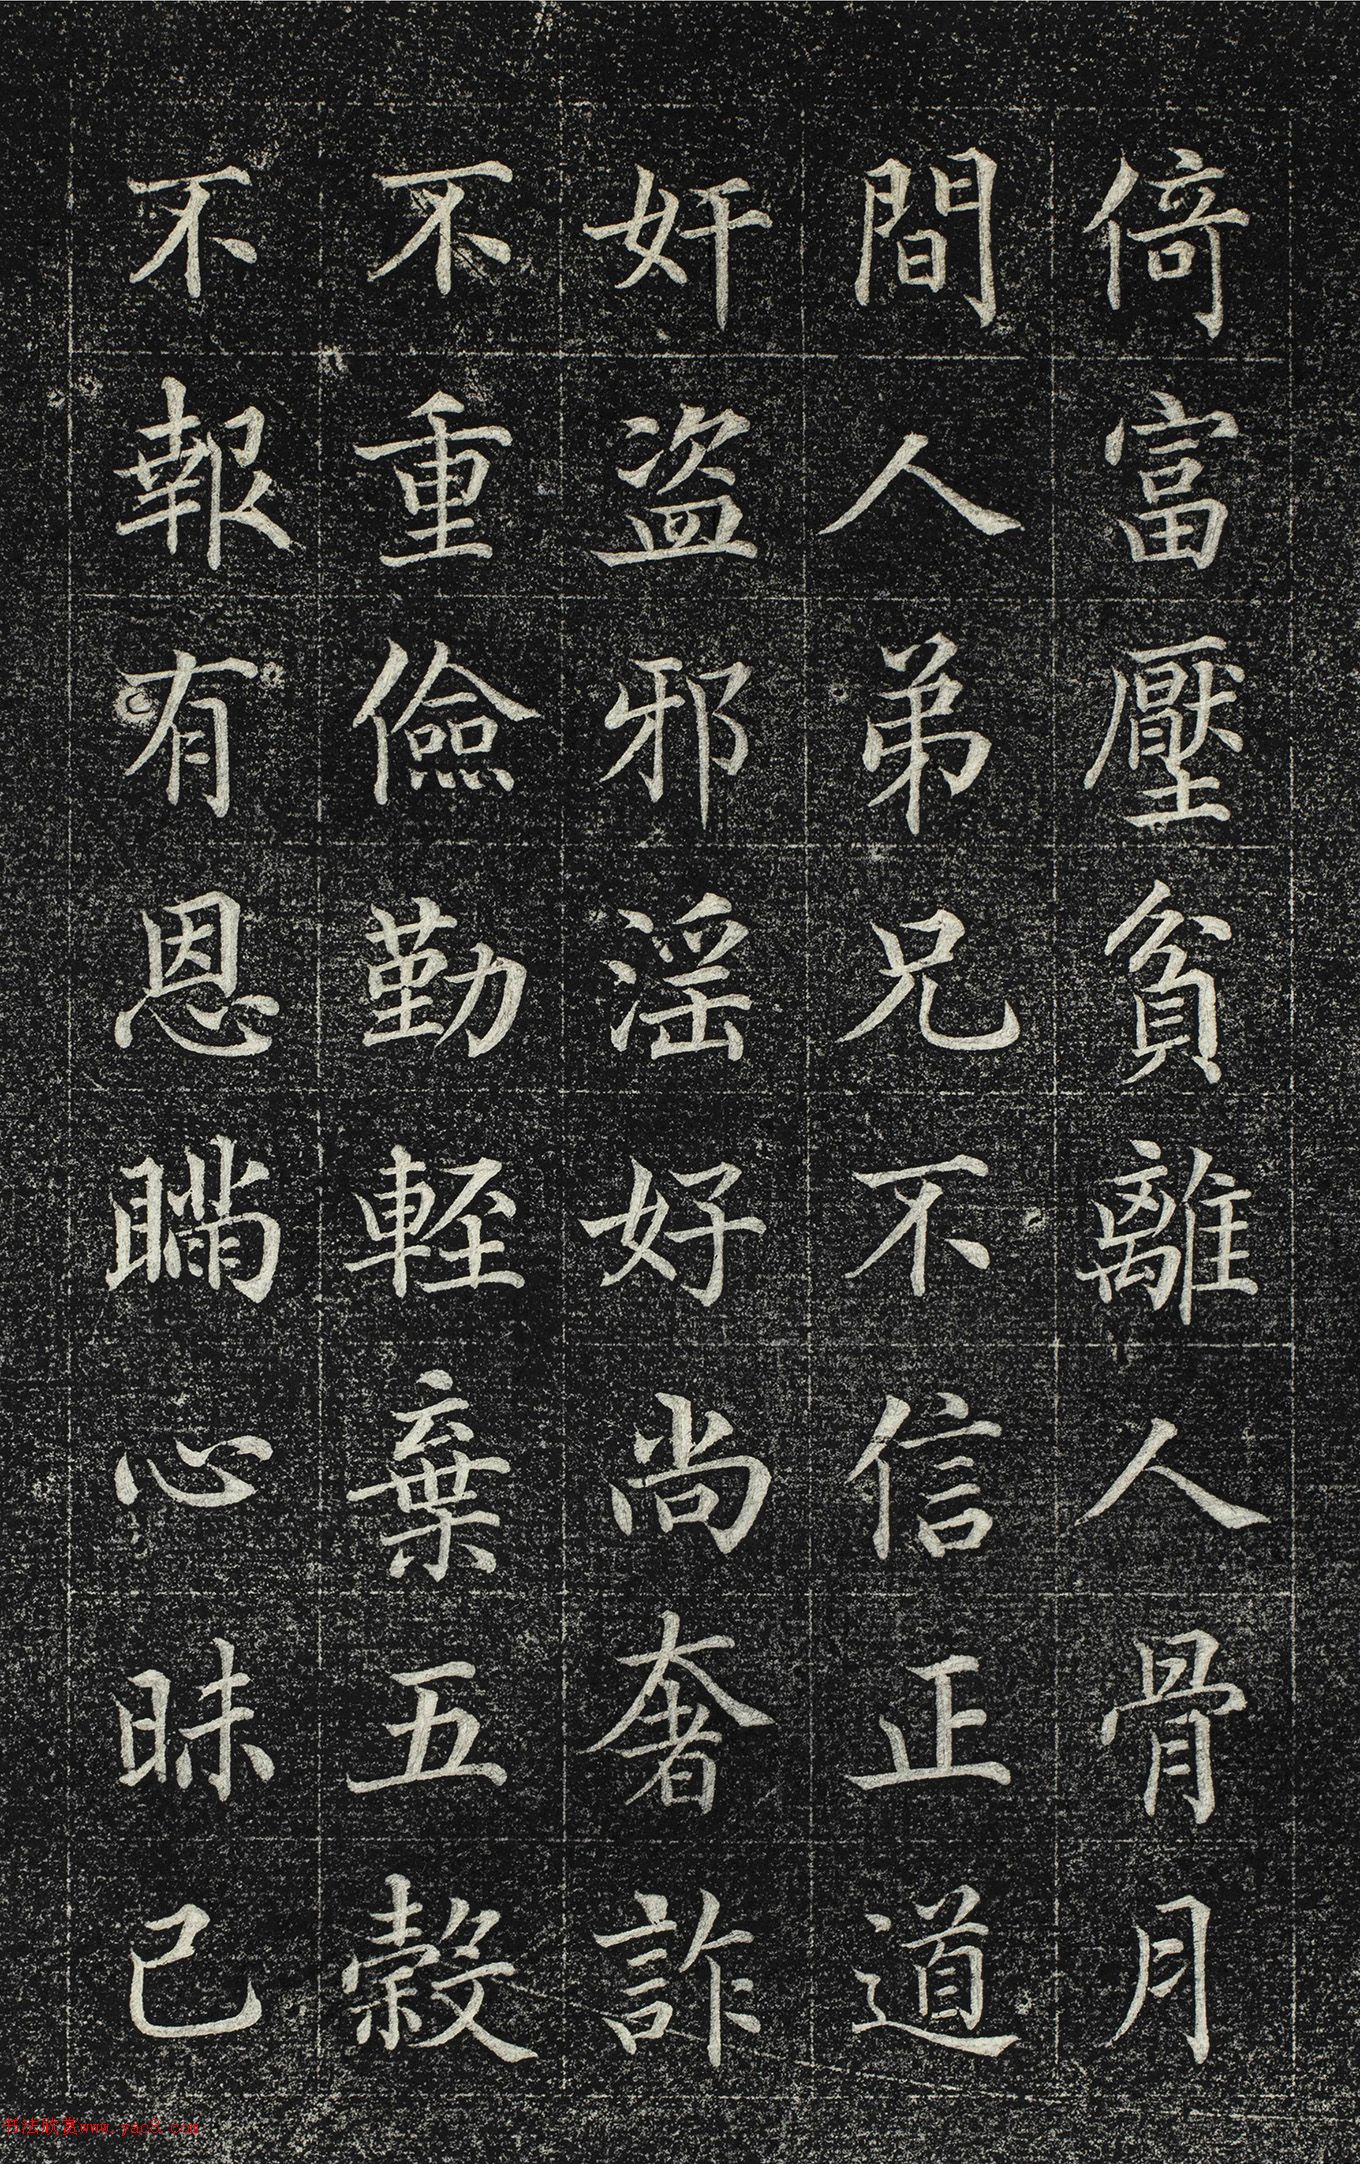 倚富壓貧離人骨月
間人弟兄不信正道
奸盜邪滛好尚奢詐
不重儉勤輊棄五穀
不報有恩瞞心昧己
书法欣赏www.yac8.com